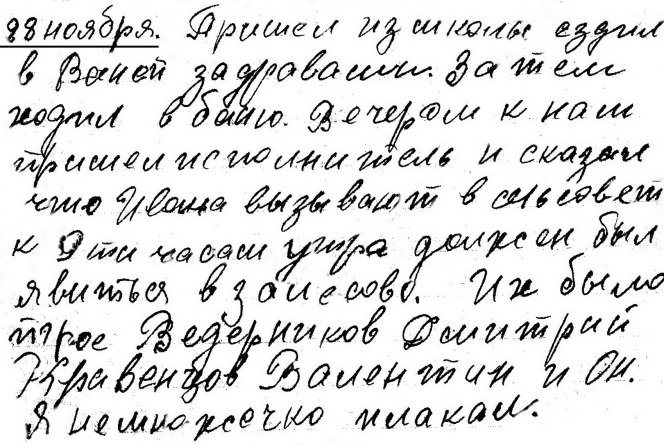 28 ноября. Пришел из школы ездил
в Ваней за дравами. Затем
ходил в баню. Вечером к нам
пришел исполнитель и сказал
что Ивана вызывают в сельсовет
к 9 ти часам утра должен был
явиться в Заиссово. Их было
трое Ведерников Дмитрий
Кравенцов Валентин и Он.
Я немножечко плакал.